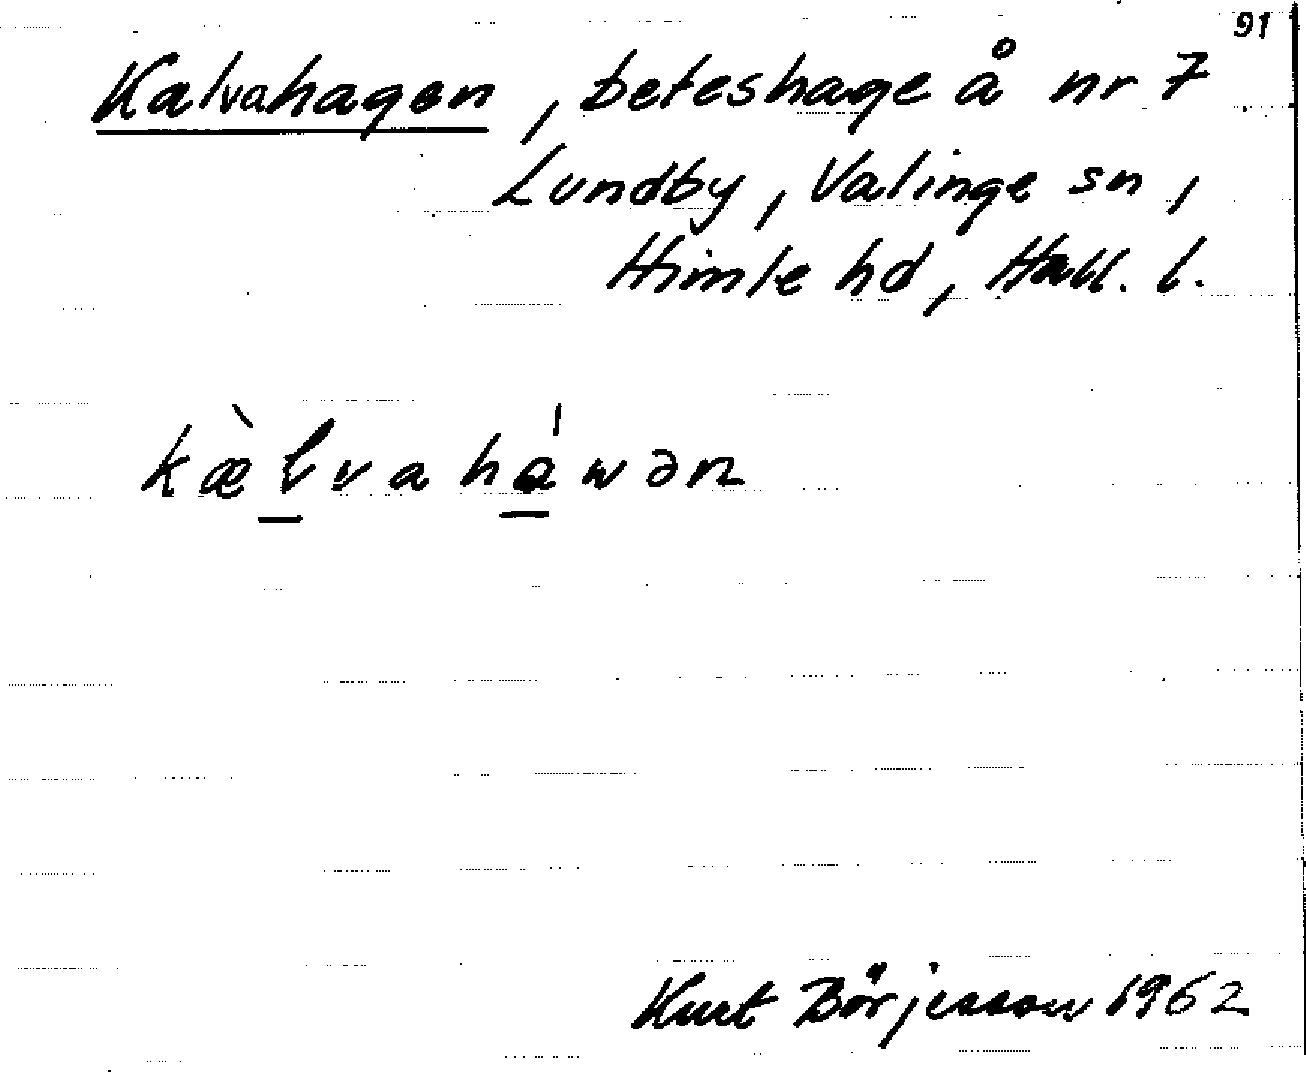 91
Kalvahagen, beteshage å nr 7
Lundby, Valinge sn,
Himle hd, Hall. l.
kæ̀l̲vahá̲wən
Kurt Börjesson 1962